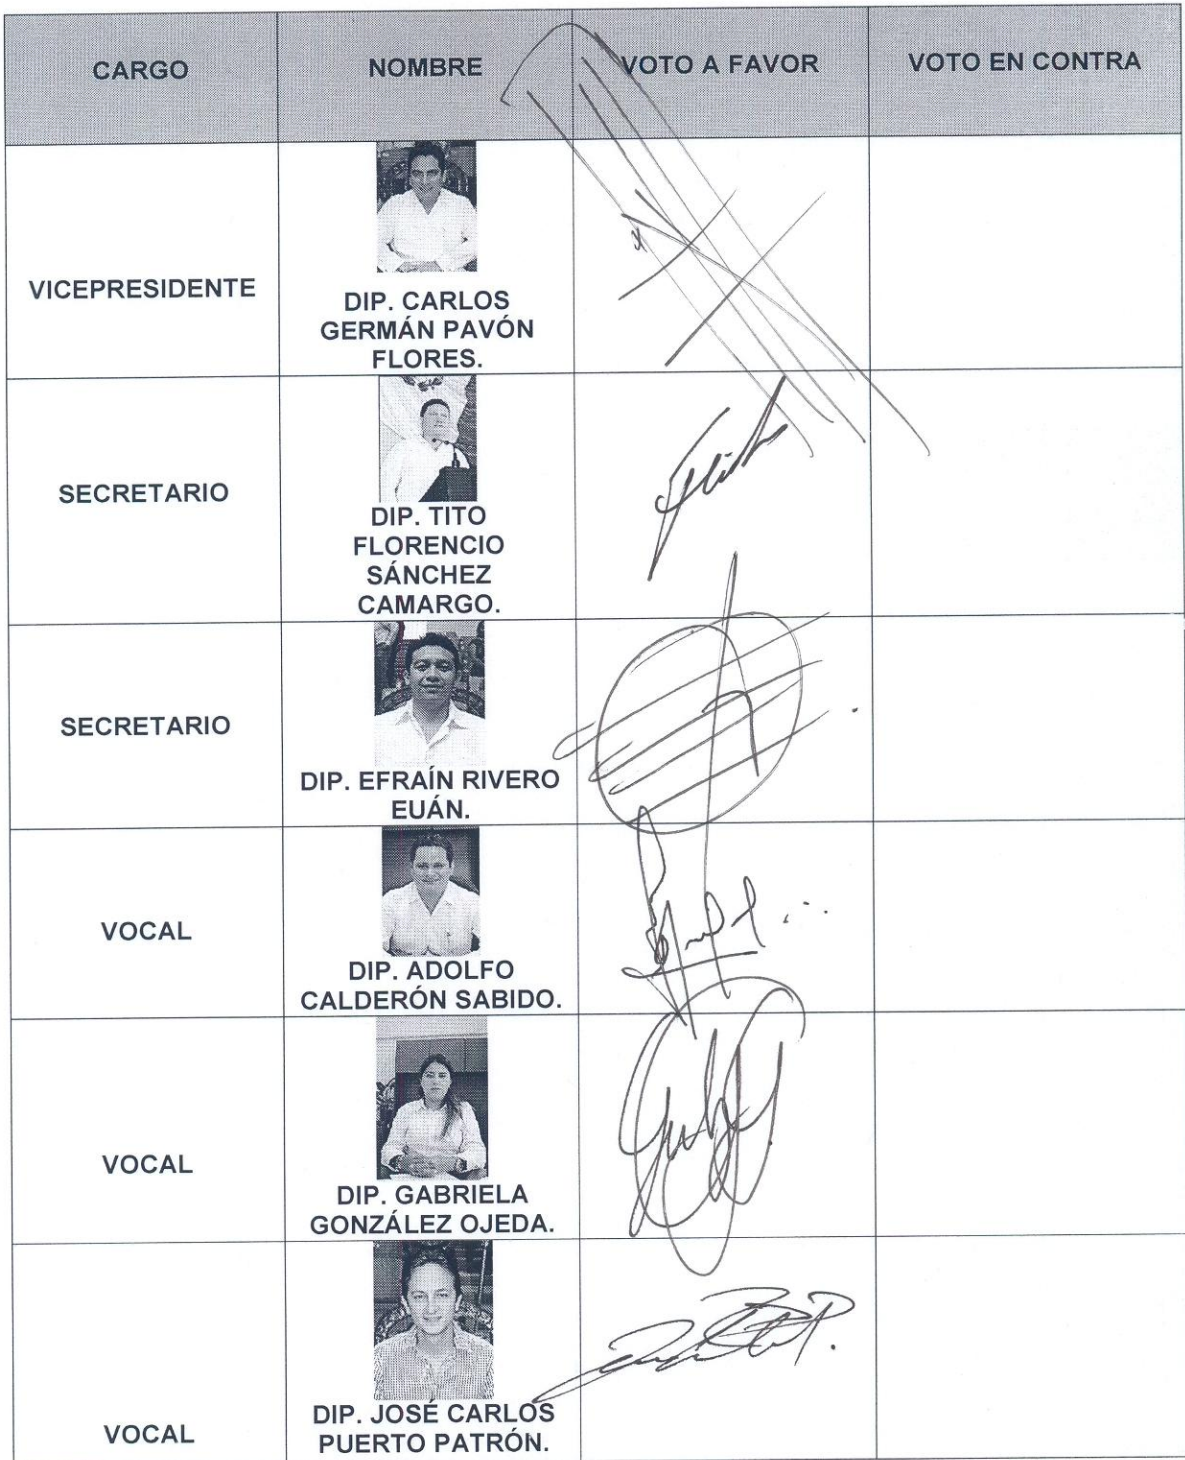 CARGO
NOMBRE
VOTO A FAVOR
VOTO EN CONTRA
VICEPRESIDENTE
DIP. CARLOS
GERMÁN PAVÓN
FLORES.
SECRETARIO
DIP. TITO
FLORENCIO
SÁNCHEZ
CAMARGO.
SECRETARIO
DIP. EFRAÍN RIVERO
EUÁN.
VOCAL
DIP. ADOLFO
CALDERÓN SABIDO.
VOCAL
DIP. GABRIELA
GONZÁLEZ OJEDA.
VOCAL
DIP. JOSÉ CARLOS
PUERTO PATRÓN.